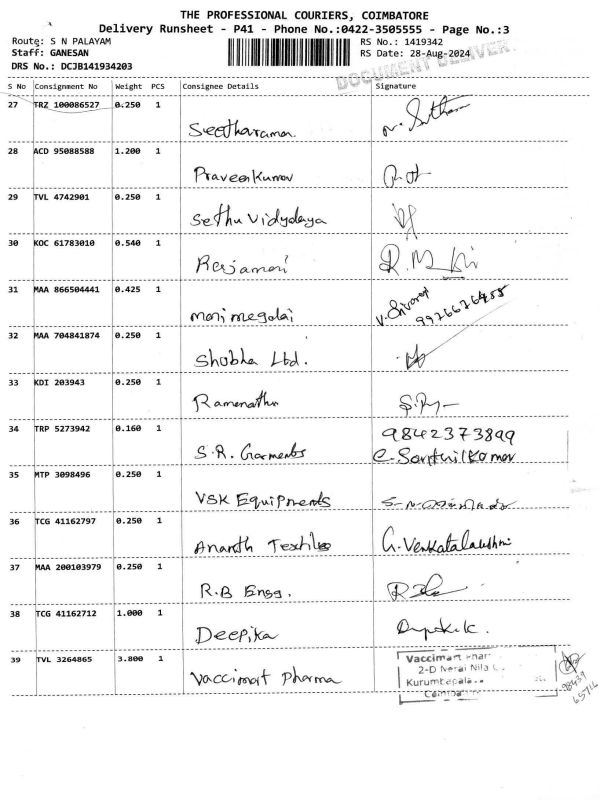 THE PROFESSIONAL COURIERS, COIMBATORE
Delivery Runsheet - P41 - Phone No.:0422-3505555 - Page No.:3
Route: S N PALAYAM
RS No.: 1419342
Staff: GANESAN
RS Date: 28-Aug-2024
DRS No.: DCJB141934203
DOCUMENT DELIVER
S No Consignment No Weight PCS Consignee Details Signature
27 TRZ 100086527 0.250 1
Seetharaman
28 ACD 95088588 1.200 1
PraveenKumar
29 TVL 4742901 0.250 1
Sethu Vidydaya
30 KOC 61783010 0.540 1
31 MAA 866504441 0.425 1
manimegalai
32 MAA 704841874 0.250 1
Shobha Ltd.
33 KDI 203943 0.250 1
Ramanathan
34 TRP 5273942 0.160 1
9842373899
S.R. Garments C. Senthilkumar
35 MTP 3098496 0.250 1
VSK Equipments
36 TCG 41162797 0.250 1
Ananth Textiles G. Venkatalakshmi
37 MAA 200103979 0.250 1
R.B Engg.
38 TCG 41162712 1.000 1
Deepika Deepika.k.
39 TVL 3264865 3.800 1
Vaccimart Pharma
Vaccimart
2-D Nerai Nila